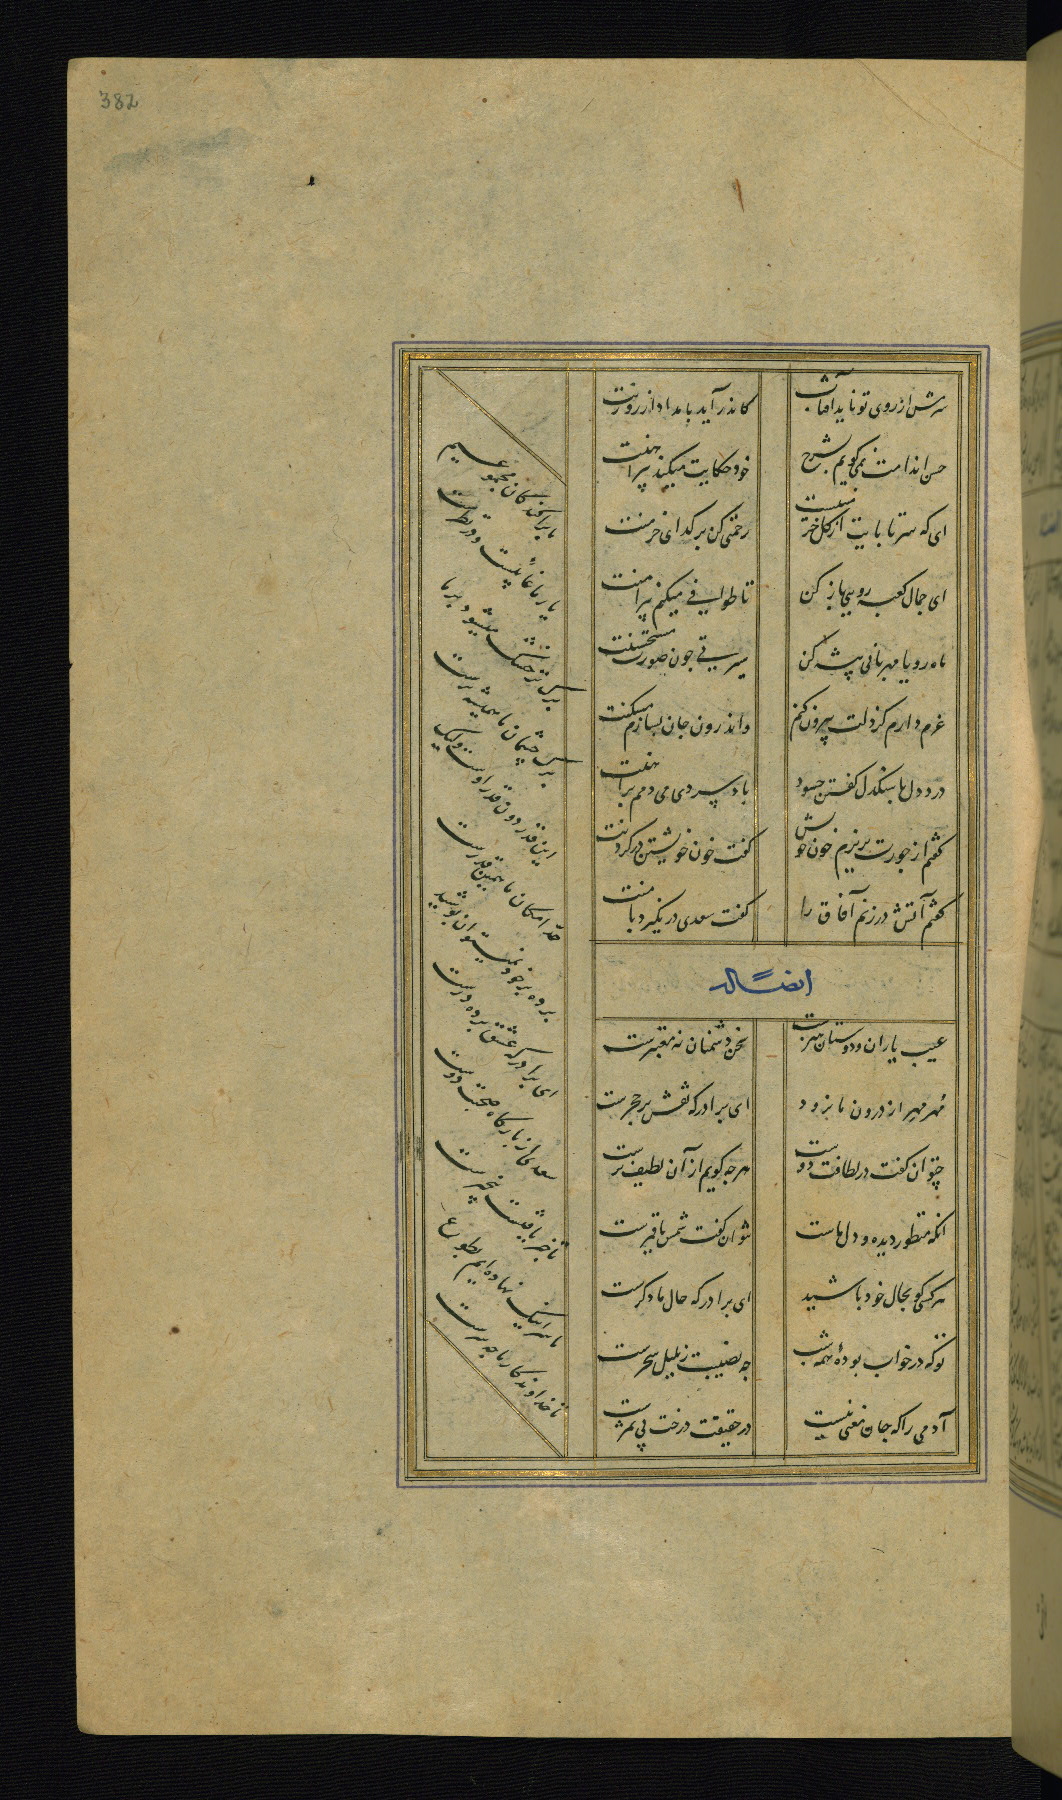 382
شرمش از روی تو باید آفتاب
کاندر آید بامداد از روزنت
حسن اندامت نمی‌گویم بشرح
خود حکایت میکند پیراهنت
ای که سر تا پایت از گل خرمنست
رحمتی کن بر گدای خرمنت
ای جمال کعبه رویی باز کن
تا طوافی میکنم پیرامنت
ماه رویا مهربانی پیشه کن
سیرتی چون صورت مستحسنت
عزم دارم کز دلت بیرون کنم
واندرون جان بسازم مسکنت
درد دل با سنگدل گفتن چسود
باد سردی می دمم بر آهنت
گفتم از جورت بریزم خون خویش
گفت خون خویشتن در گردنت
گفتم آتش در زنم آفاق را
گفت سعدی در نگیرد با منت
ایضا له
عیب یاران و دوستان هنرست
سخن دشمنان نه معتبرست
مهر مهر از درون ما نرود
ای برادر که نقش بر حجرست
چتوان گفت در لطافت دوست
هرچه گویم از آن لطیف ترست
آنکه منظور دیده و دل ماست
نتوان گفت شمس یا قمرست
هر کسی گو بحال خود باشید
ای برادر که حال ما دگرست
توکه در خواب بوده همه شب
چه نصیبت ز بلبل سحرست
آدمی را که جان معنی نیست
در حقیقت درخت بی ثمرست
ما پراکندگان مجموعیم
یار ما غایبست و در نظرست
برگ تر خشک میشود بزمان
برگ چشمان ما همیشه ترست
این قدر دون قدر اوست ولیک
حد امکان ما همین قدرست
پرده بر خود نمیتوان پوشید
ای برادر که عشق پرده درست
سعدی از بارگاه صحبت دوست
تا خبر یافتست بیخبرست
ما سر اینک نهاده ایم بطوع
تا خداوندگار ما چه سرست